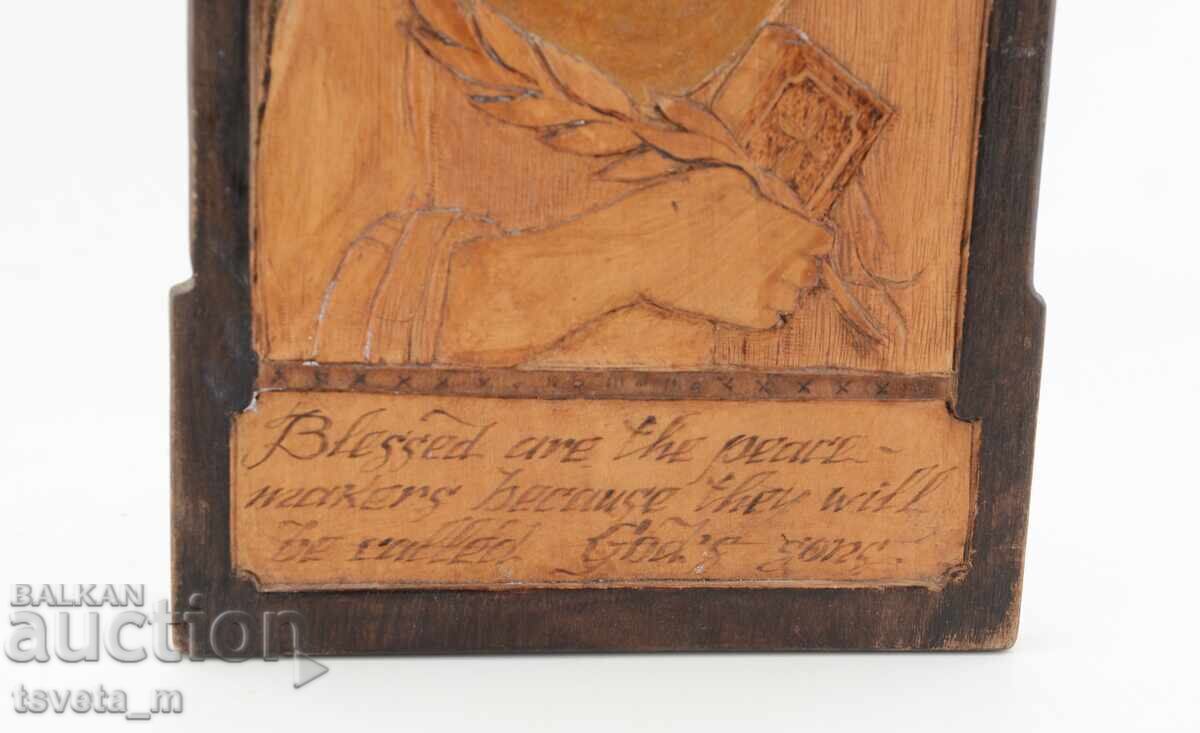 Blessed are the peace-
makers because they will
be called God's sons.
BALKAN
auction
tsveta_m